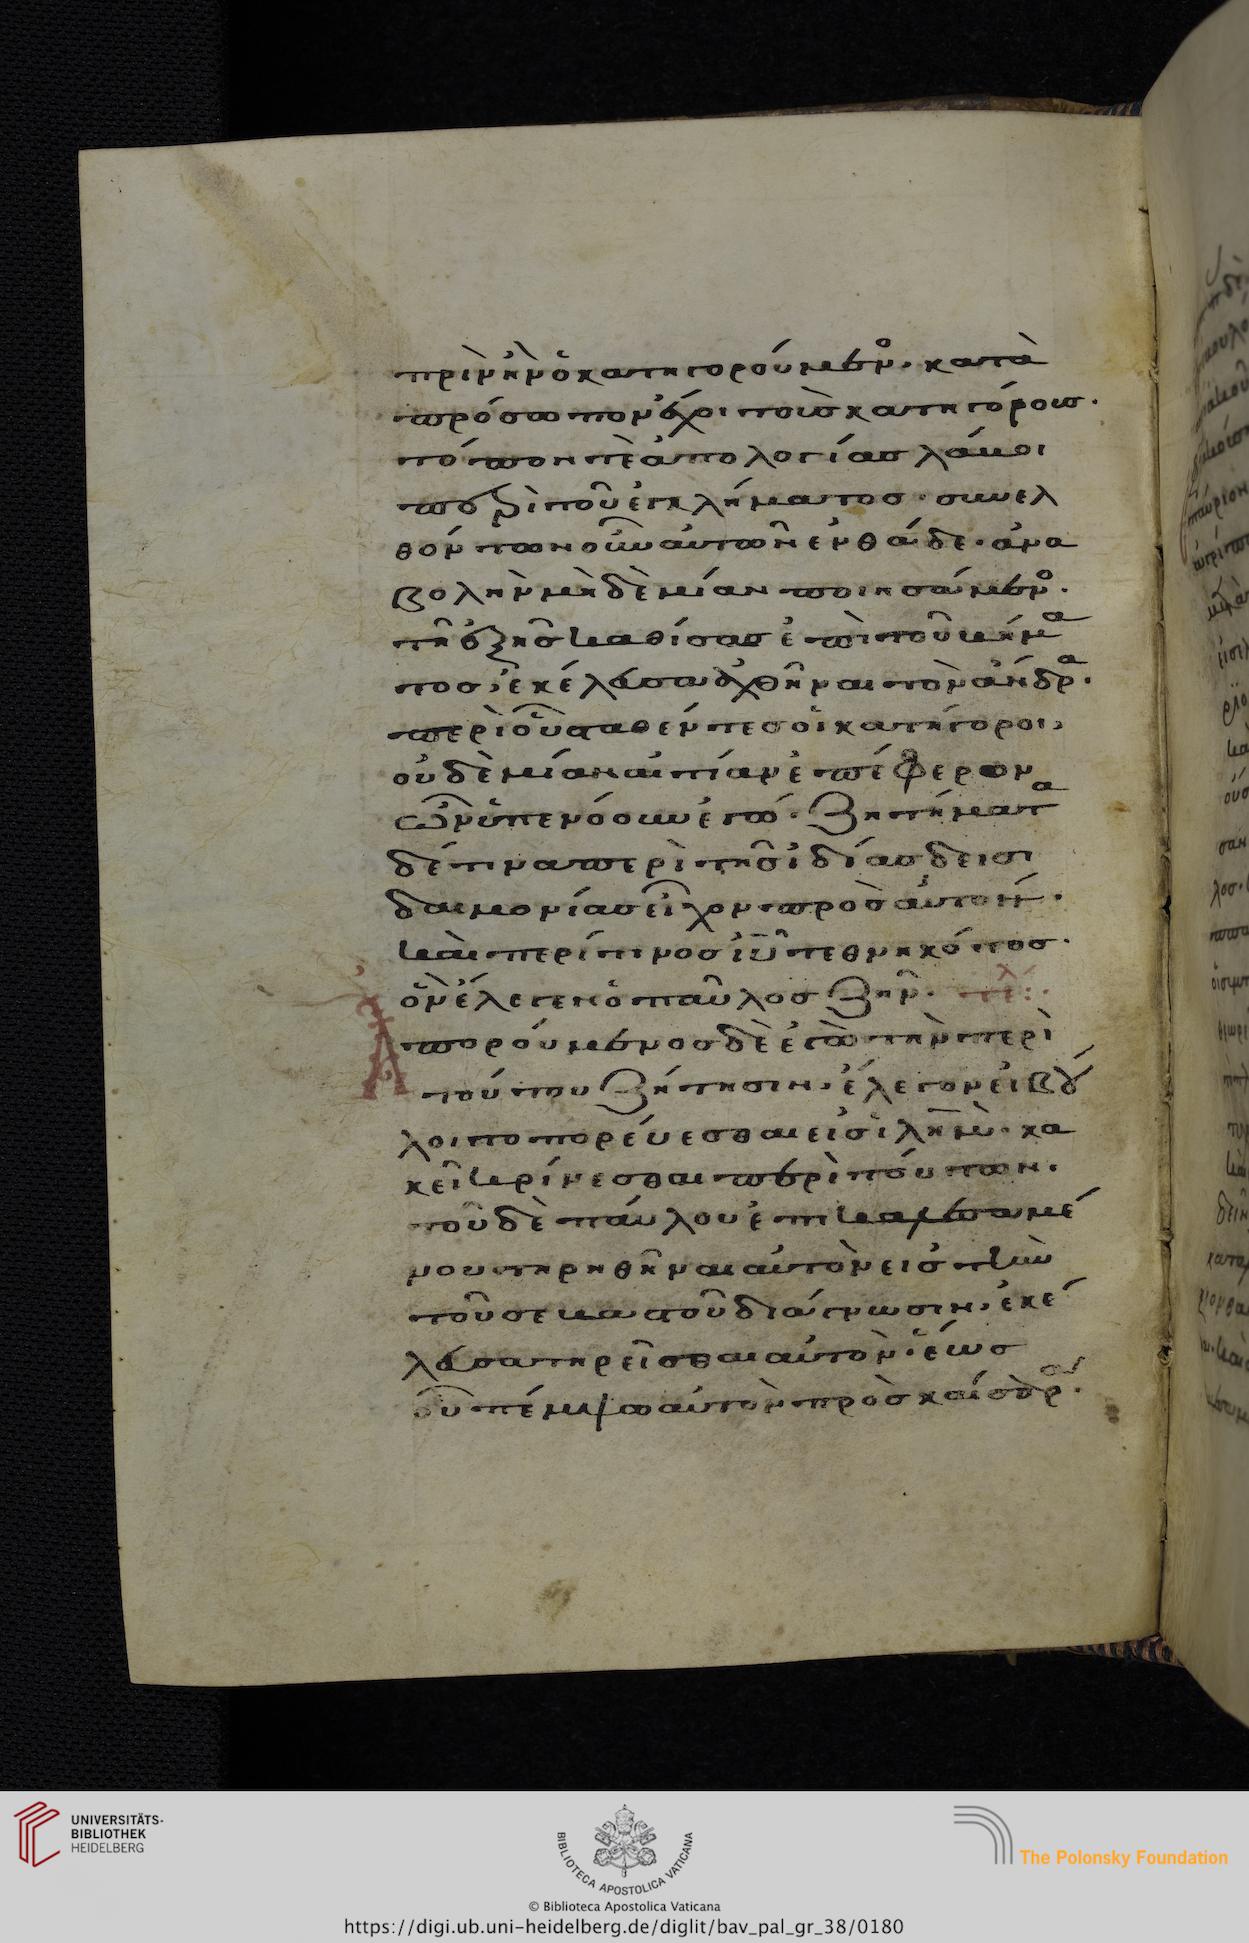 πρὶν ἢν ὁ κατηγορούμενο. κατὰ
πρόσωπον ἔχοι τοὺς κατηγόρους.
τόπον τὲ ἀπολογίας λάβοι
περὶ τοῦ ἐγκλήματος. συνελ
θόντων οὖν αὐτῶν ἐνθάδε. ἀνα
βολὴν μὴδὲμίαν ποιησάμενο.
τῆ ἑξῆς καθίσας ἐπὶ τοῦ βήμα
τος, ἐκέλευσα ἀχθῆναι τὸν ἄνδρα.
περὶ οὗ σταθέντες οἱ κατήγοροι,
οὐδὲμίαν αἰτίαν ἐπέφερον
ὧν ὑπενόουν ἐγώ. ζητήματα
δέ τινα περὶ τῆς ἰδίας δεισι
δαιμονίας εἶχον πρὸς αὐτόν.
καὶ περί τινος ἰῦ τεθνηκότος.
ὃν ἔλεγεν ὁ παῦλος ζῆν. τλ:.
Ἀπορούμενος δὲ ἐγὼ τὴν περὶ
τούτου ζήτησιν. ἔλεγον εἰ βού
λοιτο πορεύεσθαι εἰς ἱλημ. κα
κεῖ κρίνεσθαι περὶ τούτων.
τοῦ δὲ παύλου ἐπικαλεσαμέ
νου τηρηθῆναι αὐτὸν εἰς τὴν
τοῦ σεβαστοῦ διάγνωσιν. ἐκέ
λευσα τηρεῖσθαι αὐτὸν. ἕως
οὗ πέμψω αὐτὸν πρὸς καίσαρα.
UNIVERSITÄTS-
BIBLIOTHEK
HEIDELBERG
BIBLIOTECA APOSTOLICA VATICANA
The Polonsky Foundation
© Biblioteca Apostolica Vaticana
https://digi.ub.uni-heidelberg.de/diglit/bav_pal_gr_38/0180